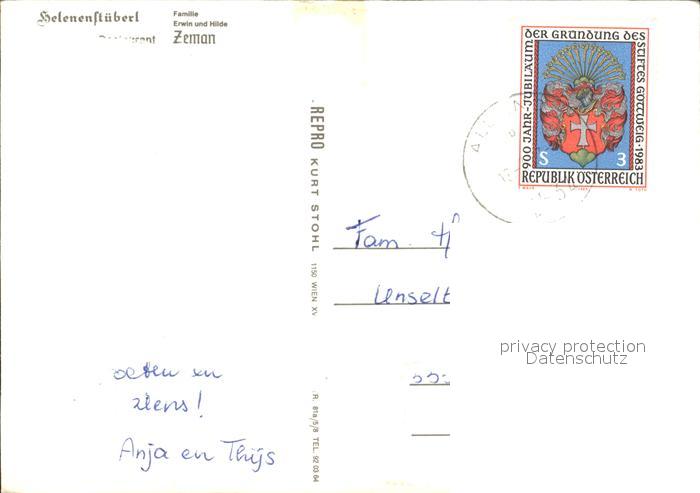 Helenenstüberl
Familie
Erwin und Hilde
Zeman
REPRO KURT STOHL 1150 WIEN XV
R. 81a/5/8 TEL. 92 03 64
900 JAHR-JUBILÄUM DER GRÜNDUNG DES STIFTES GÖTTWEIG · 1983
S 3
REPUBLIK ÖSTERREICH
Fam. H
Unselt
privacy protection
Datenschutz
en
ziens!
Anja en Thijs